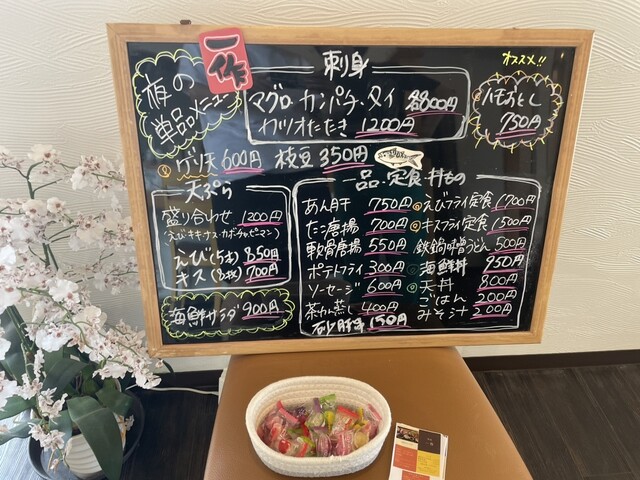 一作
夜の
単品メニュー
刺身
マグロ・カンパチ・タイ 各800円
カツオたたき 1200円
オススメ!!
ハモおとし
750円
ゲソ天 600円 枝豆 350円
天ぷら
盛り合わせ 1200円
(えび・キス・ナス・カボチャ・ピーマン)
えび(5本) 850円
キス(8枚) 700円
海鮮サラダ 900円
一品・定食・丼もの
あん肝 750円
たこ唐揚 700円
軟骨唐揚 550円
ポテトフライ 300円
ソーセージ 600円
茶わん蒸し 400円
砂肝 150円
えびフライ定食 1700円
キスフライ定食 1500円
鉄鍋味噌うどん 500円
海鮮丼 950円
天丼 800円
ごはん 200円
みそ汁 200円